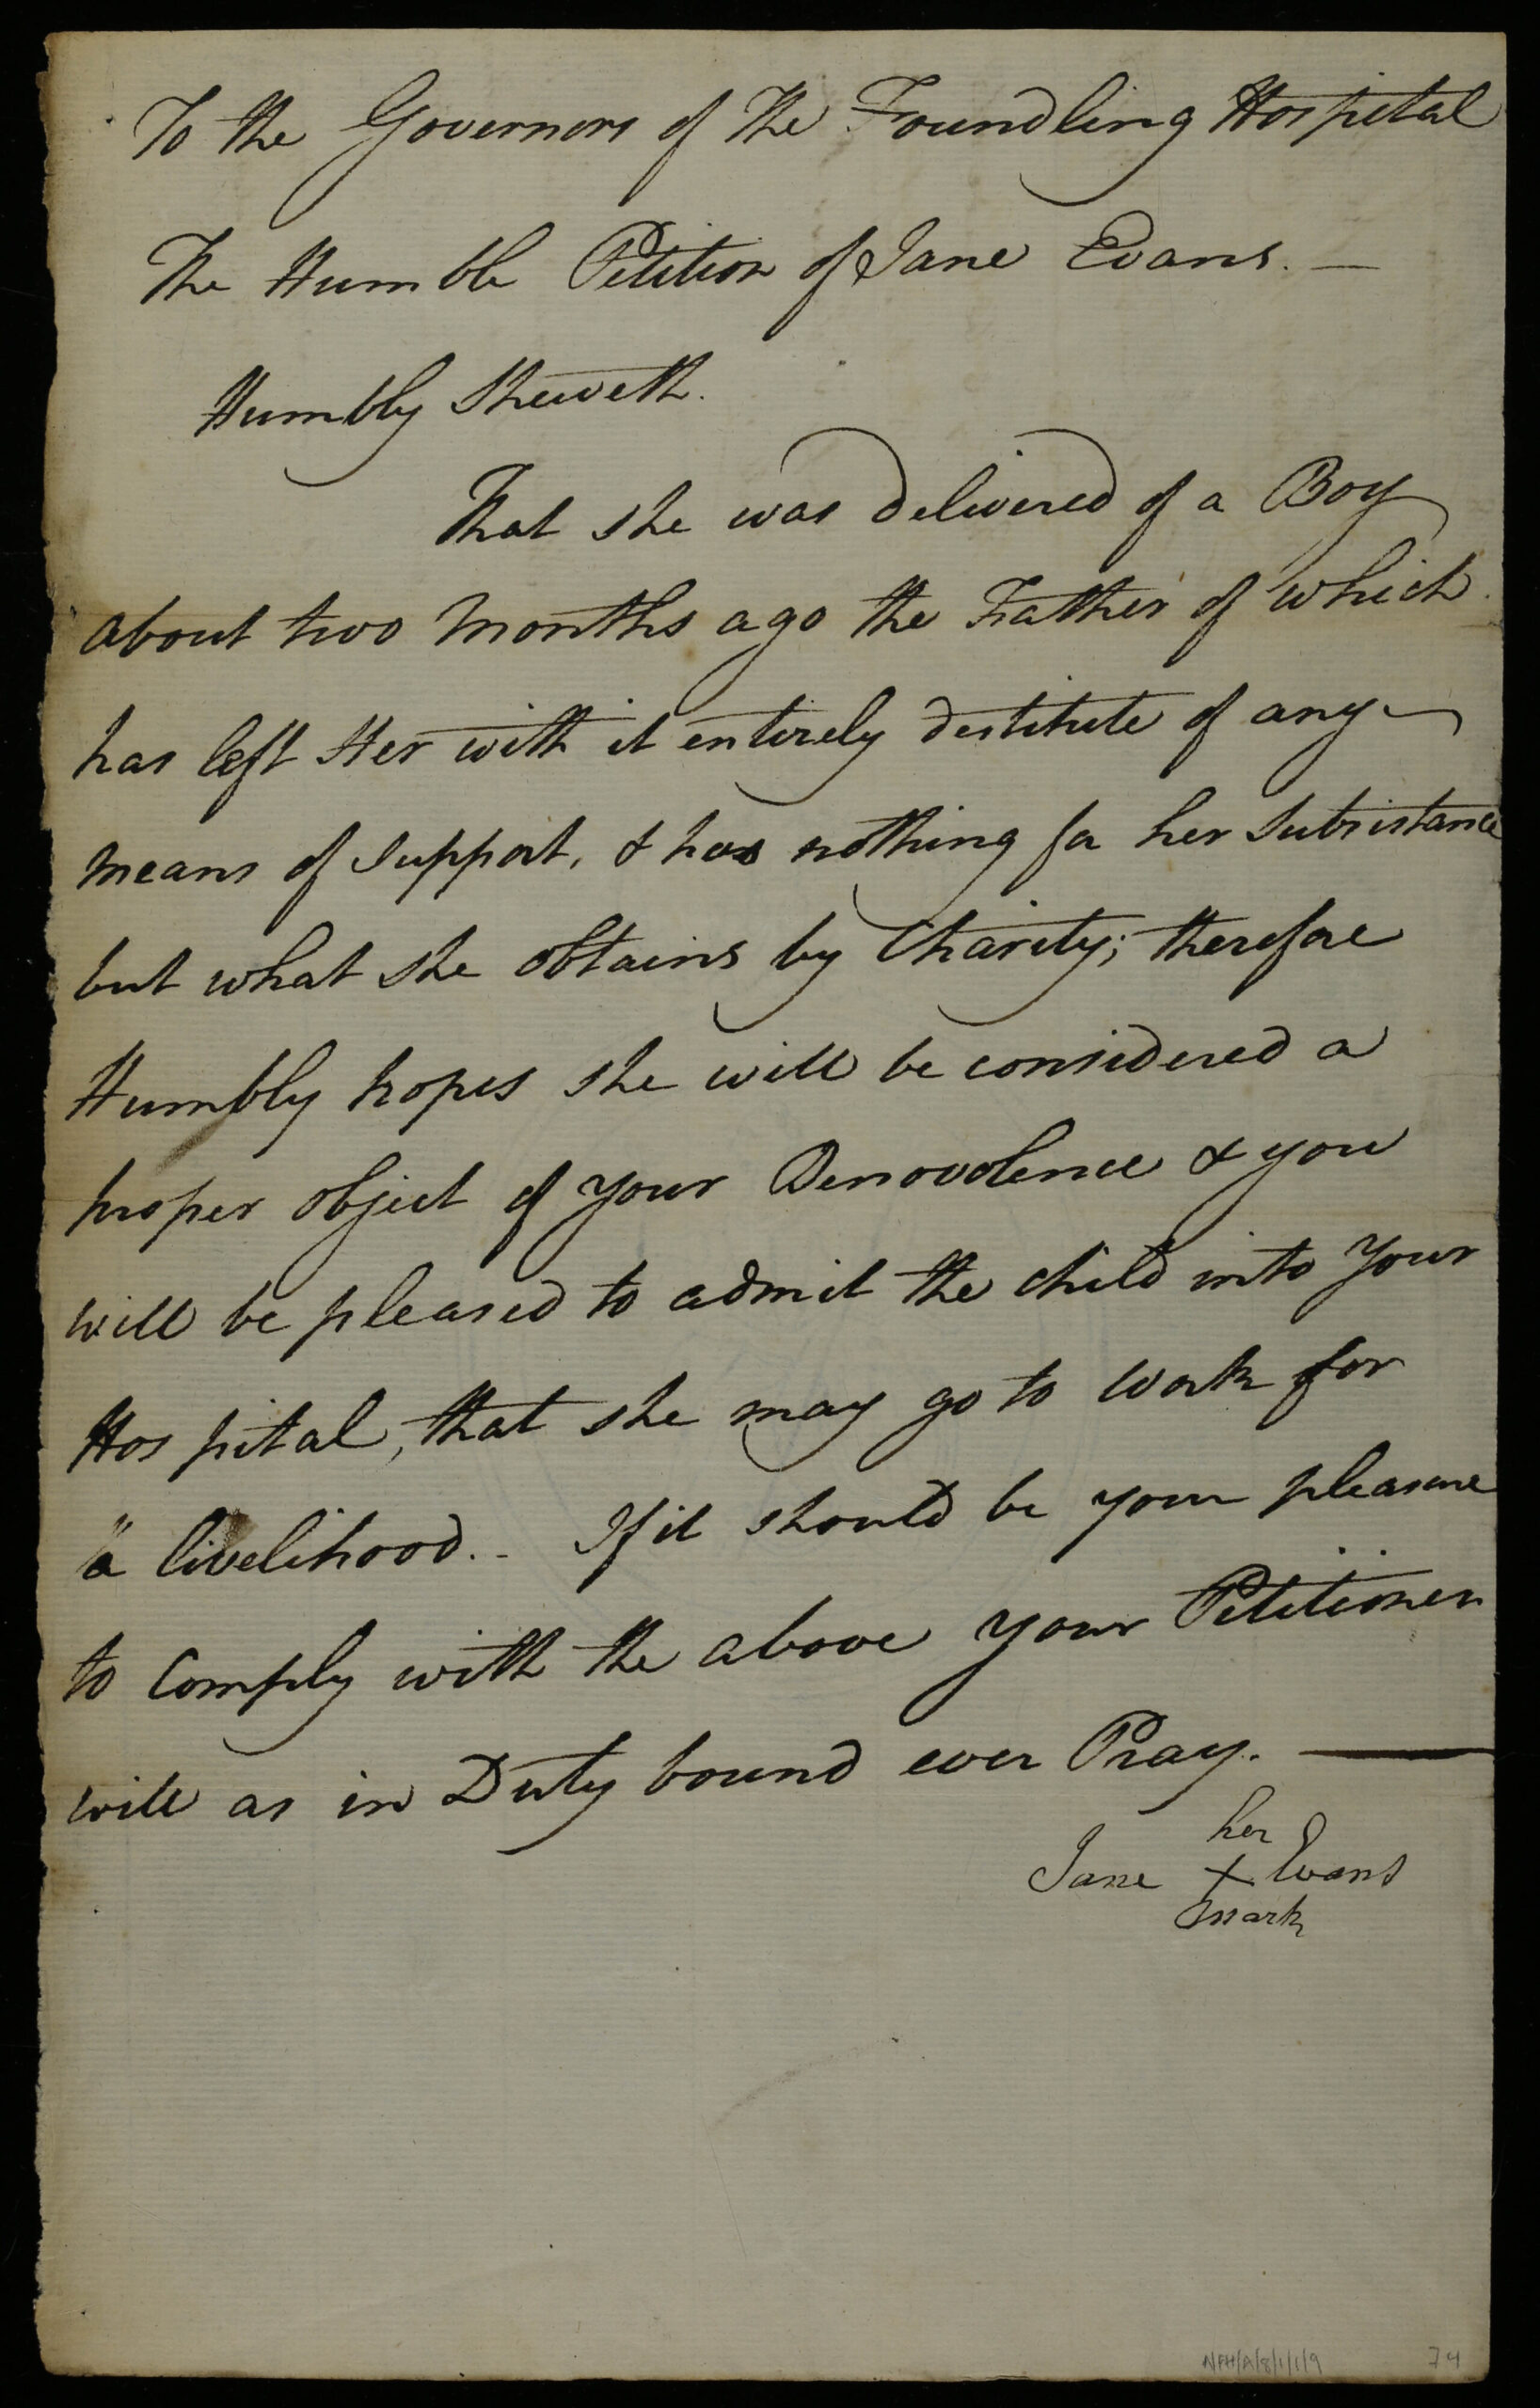 To the Governors of The Foundling Hospital
The Humble Petition of Jane Evans. —
Humbly Sheweth.
That she was delivered of a Boy
about two Months ago the Father of which
has left Her with it entirely destitute of any
means of Support, & has nothing for her Subsistance
but what she obtains by Charity; therefore
Humbly hopes she will be considered a
proper object of your Benovolence & you
will be pleased to admit the child into Your
Hospital, that she may go to Work for
a livelihood. - If it should be your pleasure
to Comply with the above Your Petitioner
will as in Duty bound ever Pray. —
her
Jane X Evans
Mark
NFH/A/8/1/1/9 74